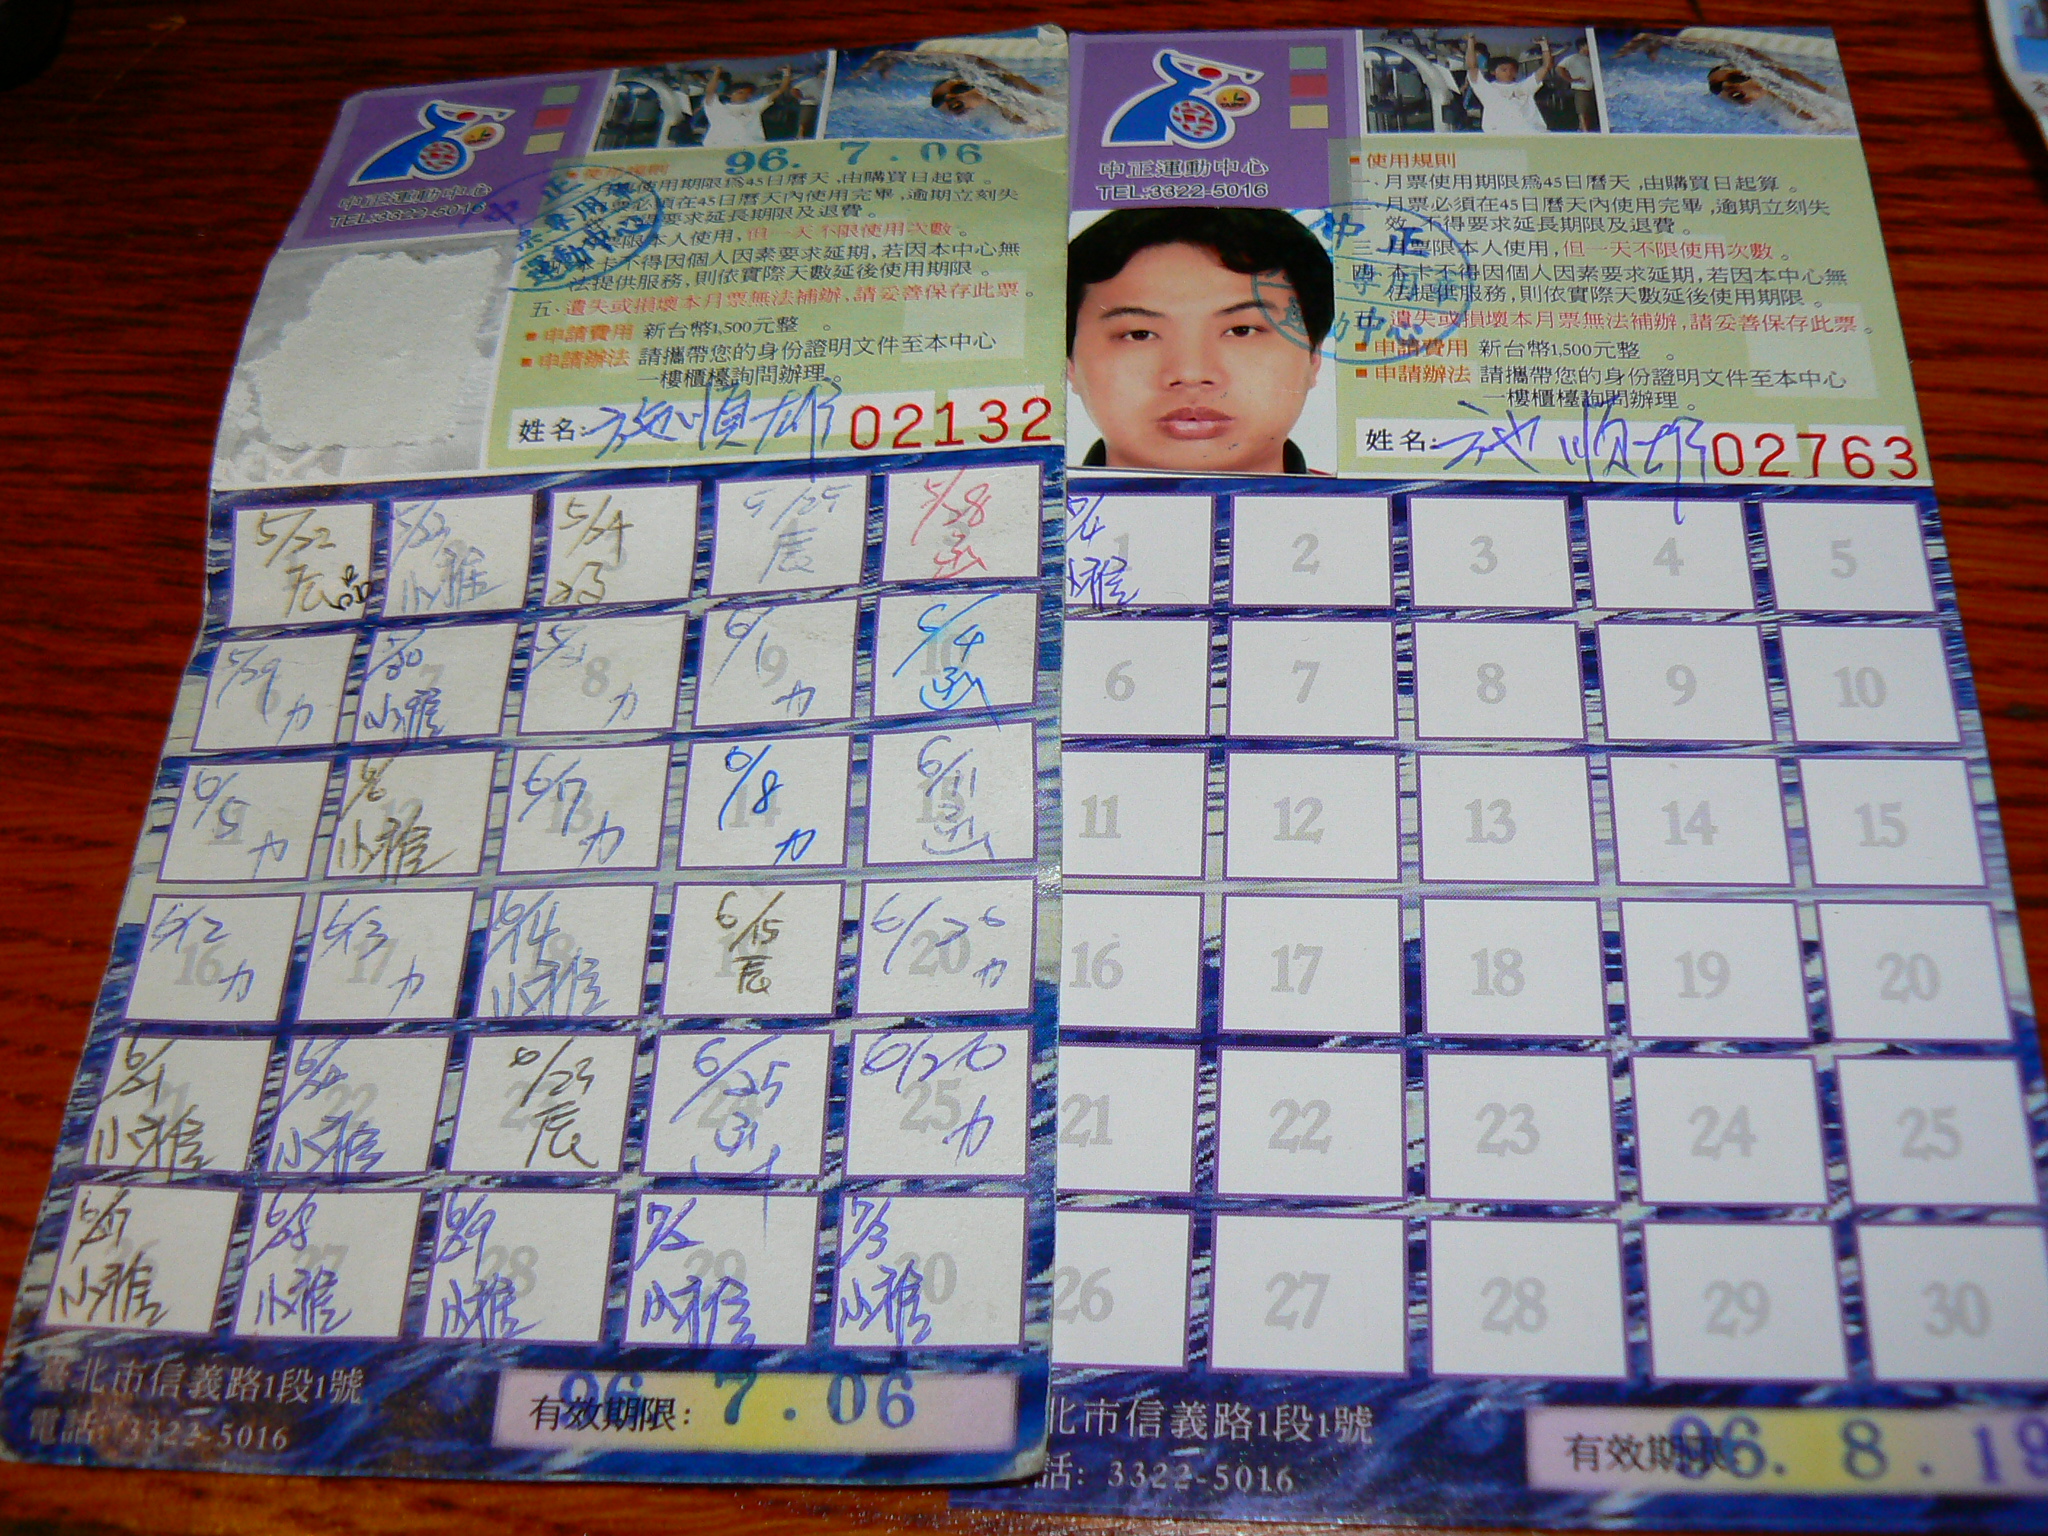 中正運動中心
TEL:3322-5016
96. 7. 06
使用規則
月票使用期限為45日曆天,由購買日起算。
必須在45日曆天內使用完畢,逾期立刻失
得要求延長期限及退費。
票限本人使用,但一天不限使用次數。
本卡不得因個人因素要求延期,若因本中心無
法提供服務,則依實際天數延後使用期限。
五、遺失或損壞本月票無法補辦,請妥善保存此票。
■申請費用 新台幣1,500元整 。
■申請辦法 請攜帶您的身份證明文件至本中心
一樓櫃檯詢問辦理。
姓名:施順雄 02132
5/22 5/24 5/25 5/28
辰 小雅 辰
5/29 5/30 6/1 6/4
6 力 7 小雅 8 力 9 力 10
6/5 6/6 6/7 6/8 6/11
力 12 小雅 13 力 14 力 15
6/12 6/13 6/14 6/15
16 力 17 力 18 小雅 辰 20 力
6/21 6/23 6/25 6/26
小雅 22 小雅 辰 25 力
6/27 6/28 6/29 7/2 7/3
小雅 27 小雅 28 小雅 29 小雅 30 小雅
臺北市信義路1段1號
電話: 3322-5016
有效期限: 96. 7. 06
中正運動中心
TEL:3322-5016
■使用規則
一、月票使用期限為45日曆天,由購買日起算。
二、月票必須在45日曆天內使用完畢,逾期立刻失
效,不得要求延長期限及退費。
三、月票限本人使用,但一天不限使用次數。
四、本卡不得因個人因素要求延期,若因本中心無
法提供服務,則依實際天數延後使用期限。
五、遺失或損壞本月票無法補辦,請妥善保存此票。
■申請費用 新台幣1,500元整 。
■申請辦法 請攜帶您的身份證明文件至本中心
一樓櫃檯詢問辦理。
姓名:施順雄 02763
7/4 小雅
1 2 3 4 5
6 7 8 9 10
11 12 13 14 15
16 17 18 19 20
21 22 23 24 25
26 27 28 29 30
北市信義路1段1號
話: 3322-5016
有效期限 96. 8. 19